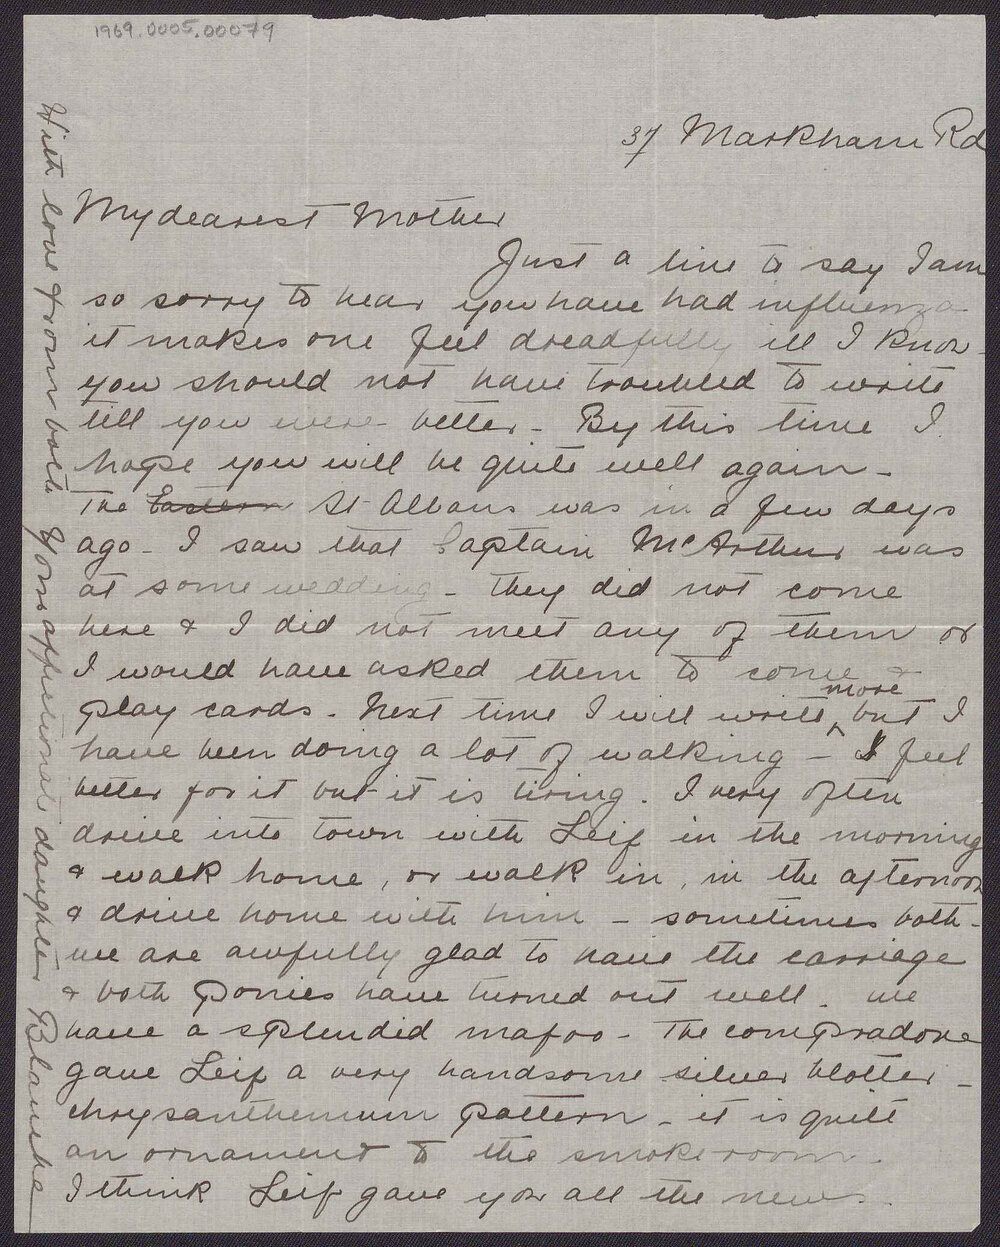 1969.0005.00079
37 Markham Rd
My dearest Mother
Just a line to say I am
so sorry to hear you have had influenza
it makes one feel dreadfully ill I know -
you should not have troubled to write
till you were better - By this time I
hope you will be quite well again -
The Eastern St Albans was in a few days
ago - I saw that Captain McArthur was
at some wedding - they did not come
here & I did not meet any of them or
I would have asked them to come &
play cards - Next time I will write more, but I
have been doing a lot of walking - I feel
better for it but it is tiring. I very often
drive into town with Leif in the morning
& walk home, or walk in, in the afternoon
& drive home with him - sometimes both -
we are awfully glad to have the carriage
& both ponies have turned out well - we
have a splendid mafoo - The compradore
gave Leif a very handsome silver blotter -
chrysanthemum pattern - it is quite
an ornament to the smokeroom.
I think Leif gave you all the news.
With love from both Your affectionate daughter Blanche